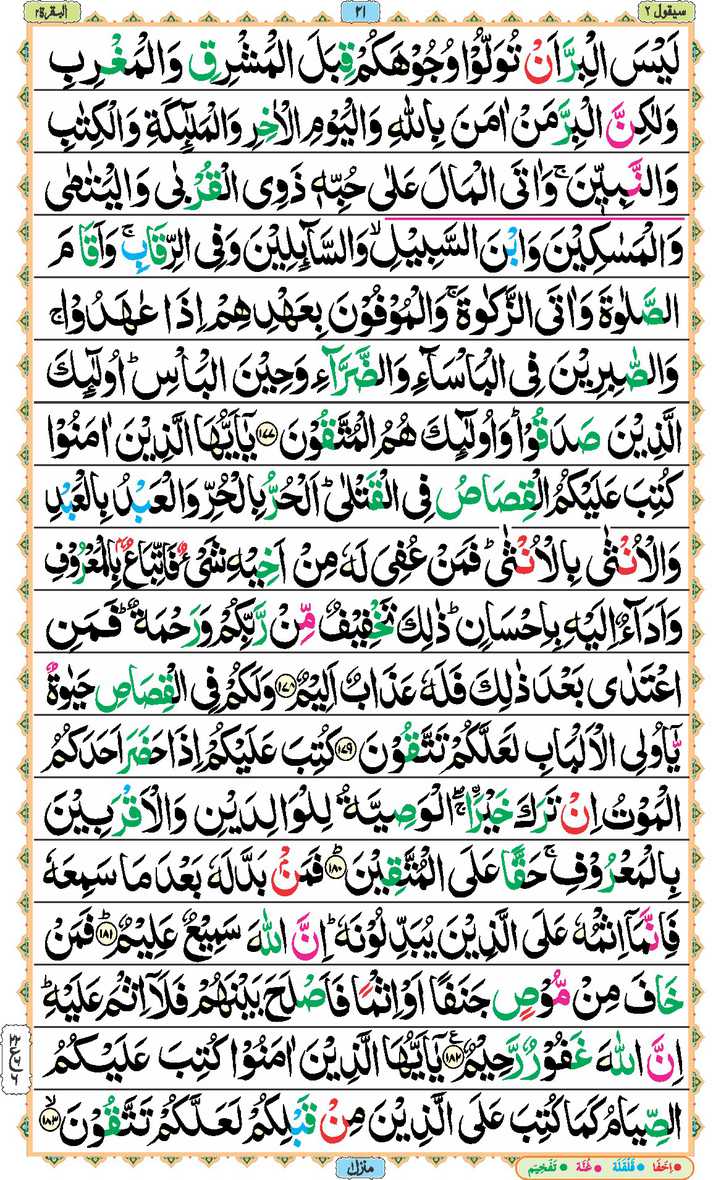 سیقول ۲
۲۱
البقرة ۲
لَيْسَ الْبِرَّ اَنْ تُوَلُّوْا وُجُوْهَكُمْ قِبَلَ الْمَشْرِقِ وَالْمَغْرِبِ
وَلٰكِنَّ الْبِرَّ مَنْ اٰمَنَ بِاللّٰهِ وَالْيَوْمِ الْاٰخِرِ وَالْمَلٰٓئِكَةِ وَالْكِتٰبِ
وَالنَّبِيّٖنَ ۚ وَاٰتَى الْمَالَ عَلٰى حُبِّهٖ ذَوِى الْقُرْبٰى وَالْيَتٰمٰى
وَالْمَسٰكِيْنَ وَابْنَ السَّبِيْلِ ۙ وَالسَّآئِلِيْنَ وَفِى الرِّقَابِ ۚ وَاَقَامَ
الصَّلٰوةَ وَاٰتَى الزَّكٰوةَ ۚ وَالْمُوْفُوْنَ بِعَهْدِهِمْ اِذَا عٰهَدُوْا ۚ
وَالصّٰبِرِيْنَ فِى الْبَاْسَآءِ وَالضَّرَّآءِ وَحِيْنَ الْبَاْسِ ؕ اُولٰٓئِكَ
الَّذِيْنَ صَدَقُوْا ؕ وَاُولٰٓئِكَ هُمُ الْمُتَّقُوْنَ ۱۷۷ يٰٓاَيُّهَا الَّذِيْنَ اٰمَنُوْا
كُتِبَ عَلَيْكُمُ الْقِصَاصُ فِى الْقَتْلٰى ؕ اَلْحُرُّ بِالْحُرِّ وَالْعَبْدُ بِالْعَبْدِ
وَالْاُنْثٰى بِالْاُنْثٰى ؕ فَمَنْ عُفِىَ لَهٗ مِنْ اَخِيْهِ شَىْءٌ فَاتِّبَاعٌۢ بِالْمَعْرُوْفِ
وَاَدَآءٌ اِلَيْهِ بِاِحْسَانٍ ؕ ذٰلِكَ تَخْفِيْفٌ مِّنْ رَّبِّكُمْ وَرَحْمَةٌ ؕ فَمَنِ
اعْتَدٰى بَعْدَ ذٰلِكَ فَلَهٗ عَذَابٌ اَلِيْمٌ ۱۷۸ وَلَكُمْ فِى الْقِصَاصِ حَيٰوةٌ
يّٰٓاُولِى الْاَلْبَابِ لَعَلَّكُمْ تَتَّقُوْنَ ۱۷۹ كُتِبَ عَلَيْكُمْ اِذَا حَضَرَ اَحَدَكُمُ
الْمَوْتُ اِنْ تَرَكَ خَيْرَا ۖۚ اۨلْوَصِيَّةُ لِلْوَالِدَيْنِ وَالْاَقْرَبِيْنَ
بِالْمَعْرُوْفِ ۚ حَقًّا عَلَى الْمُتَّقِيْنَ ؕ ۱۸۰ فَمَنْۢ بَدَّلَهٗ بَعْدَ مَا سَمِعَهٗ
فَاِنَّمَآ اِثْمُهٗ عَلَى الَّذِيْنَ يُبَدِّلُوْنَهٗ ؕ اِنَّ اللّٰهَ سَمِيْعٌ عَلِيْمٌ ؕ ۱۸۱ فَمَنْ
خَافَ مِنْ مُّوْصٍ جَنَفًا اَوْ اِثْمًا فَاَصْلَحَ بَيْنَهُمْ فَلَآ اِثْمَ عَلَيْهِ ؕ
اِنَّ اللّٰهَ غَفُوْرٌ رَّحِيْمٌ ۱۸۲ يٰٓاَيُّهَا الَّذِيْنَ اٰمَنُوْا كُتِبَ عَلَيْكُمُ
الصِّيَامُ كَمَا كُتِبَ عَلَى الَّذِيْنَ مِنْ قَبْلِكُمْ لَعَلَّكُمْ تَتَّقُوْنَ ۙ ۱۸۳
اِخْفَا قَلْقَلَة غُنَّة تَفْخِيْم
منزل